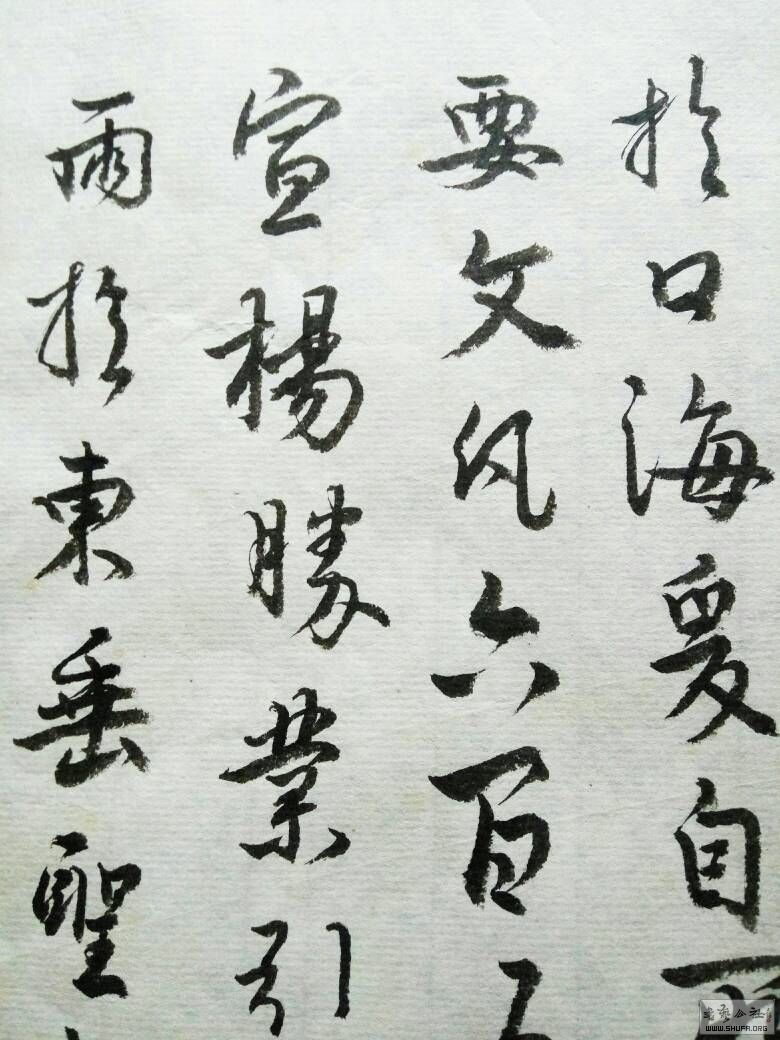 於口海爰自
要文凡六百
宣楊勝業引
雨於東垂聖
書藝公社
WWW.SHUFA.ORG